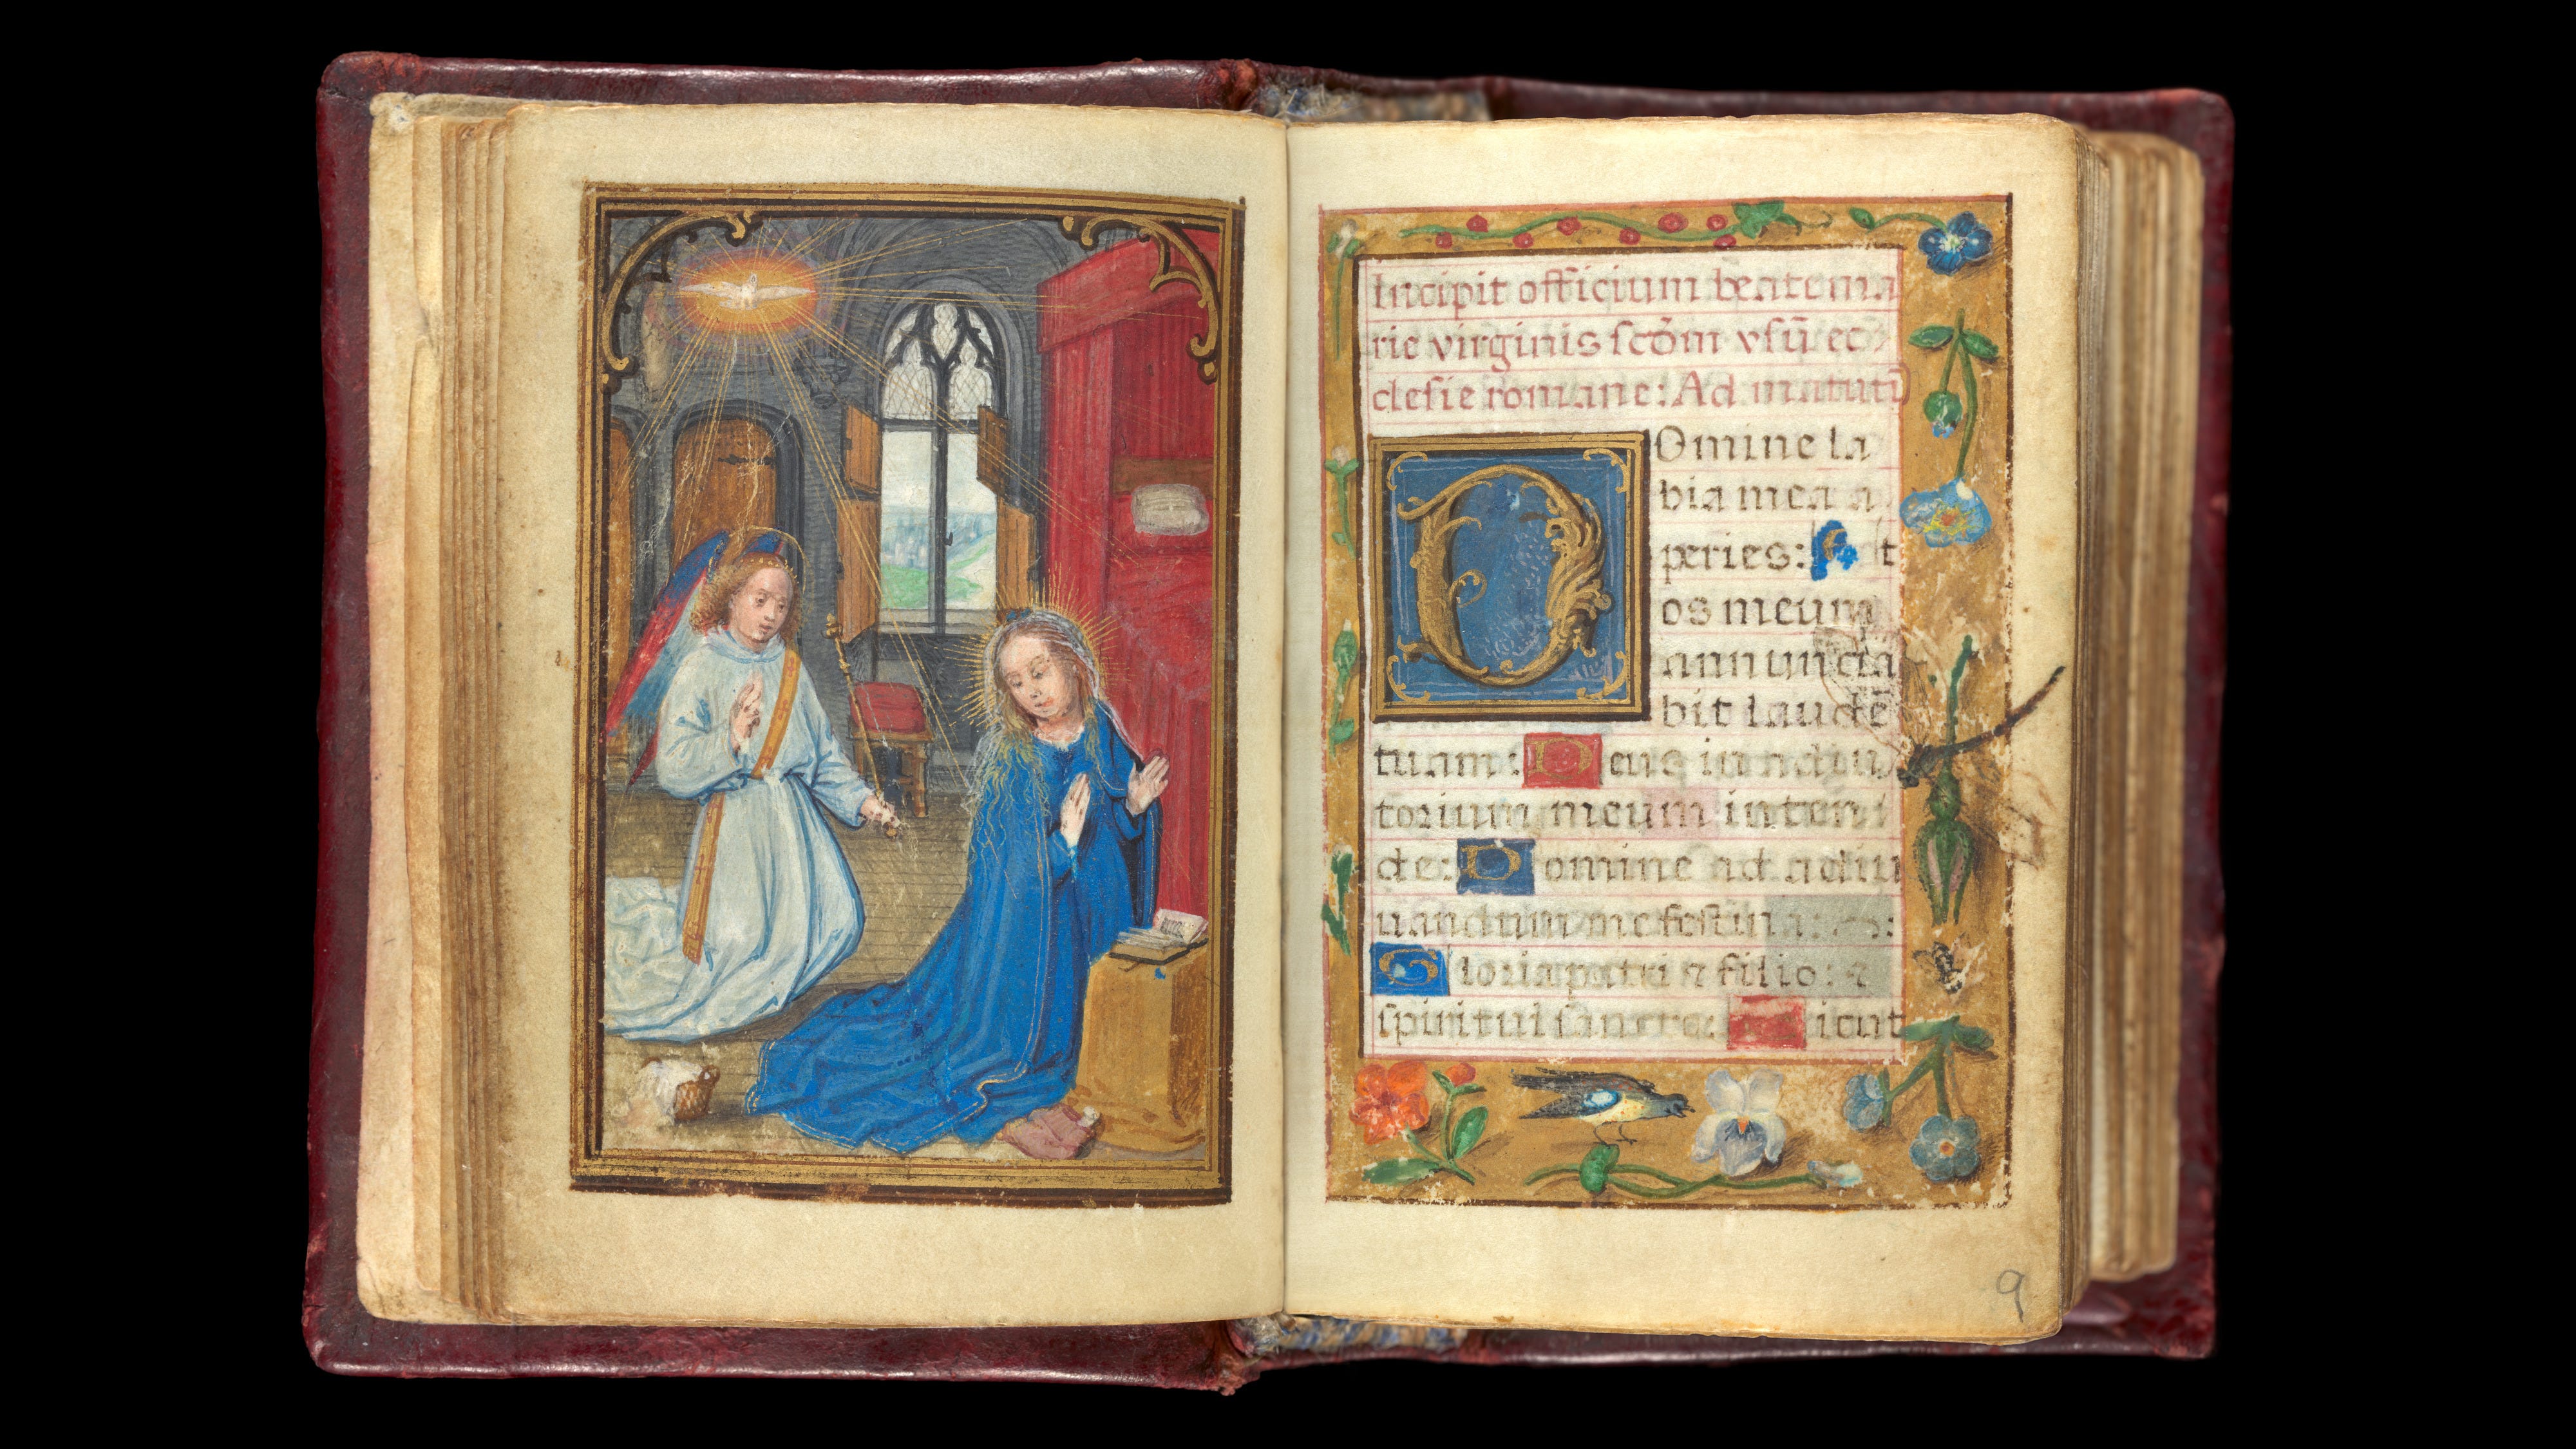 Incipit officium beate ma
rie virginis scđm vsū ec
clesie romane: Ad matutī
Domine la
bia mea a
peries: Et
os meum
annuncia
bit laudē
tuam: Deus in adiu
torium meum inten
de: Domine ad adiu
uandum me festina:
Gloria patri et filio: et
spiritui sancto: Sicut
9